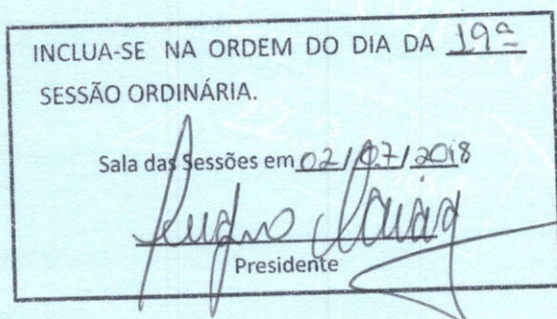 INCLUA-SE NA ORDEM DO DIA DA 19ª
SESSÃO ORDINÁRIA.
Sala das Sessões em 02/07/2018
Presidente